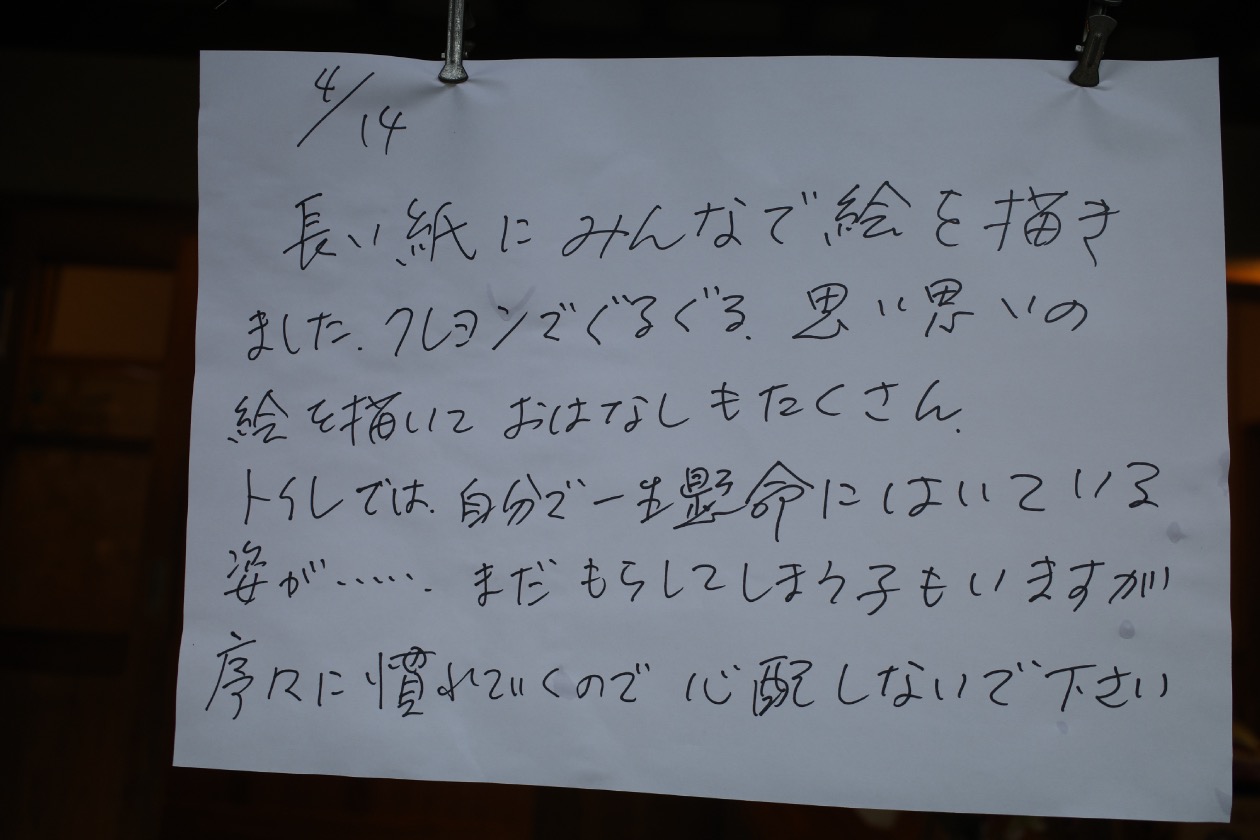 4/14
長い紙にみんなで絵を描き
ました.クレヨンでぐるぐる.思い思いの
絵を描いて おはなしもたくさん.
トイレでは.自分で一生懸命にはいている
姿が‥‥‥. まだもらしてしまう子もいますが
序々に慣れていくので 心配しないで下さい